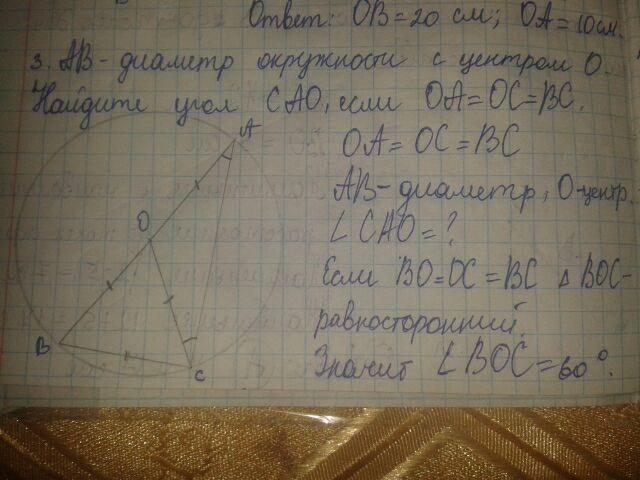 Ответ: OB = 20 см; OA = 10 см.
3. AB - диаметр окружности с центром O.
Найдите угол CAO, если OA = OC = BC.
A
OA = OC = BC
AB - диаметр, O - центр.
O
∠CAO = ?
Если BO = OC = BC Δ BOC -
равносторонний.
B
Значит ∠BOC = 60°.
C